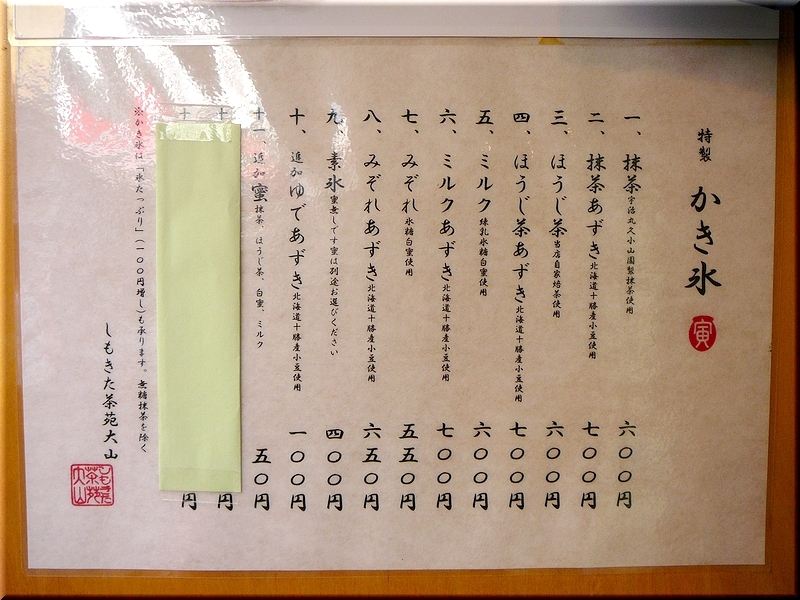 特製 かき氷
寅
一、抹茶 宇治丸久小山園製抹茶使用 六〇〇円
二、抹茶あずき 北海道十勝産小豆使用 七〇〇円
三、ほうじ茶 当店自家焙茶使用 六〇〇円
四、ほうじ茶あずき 北海道十勝産小豆使用 七〇〇円
五、ミルク 練乳氷糖白蜜使用 六〇〇円
六、ミルクあずき 北海道十勝産小豆使用 七〇〇円
七、みぞれ 氷糖白蜜使用 五五〇円
八、みぞれあずき 北海道十勝産小豆使用 六五〇円
九、素氷 蜜無しです蜜は別途お選びください 四〇〇円
十、追加ゆであずき 北海道十勝産小豆使用 一〇〇円
十一、追加蜜 抹茶、ほうじ茶、白蜜、ミルク 五〇円
十 円
十 円
※かき氷は「氷たっぷり」(一〇〇円増し)も承ります。無糖抹茶を除く
しもきた茶苑大山
しもきた茶苑大山